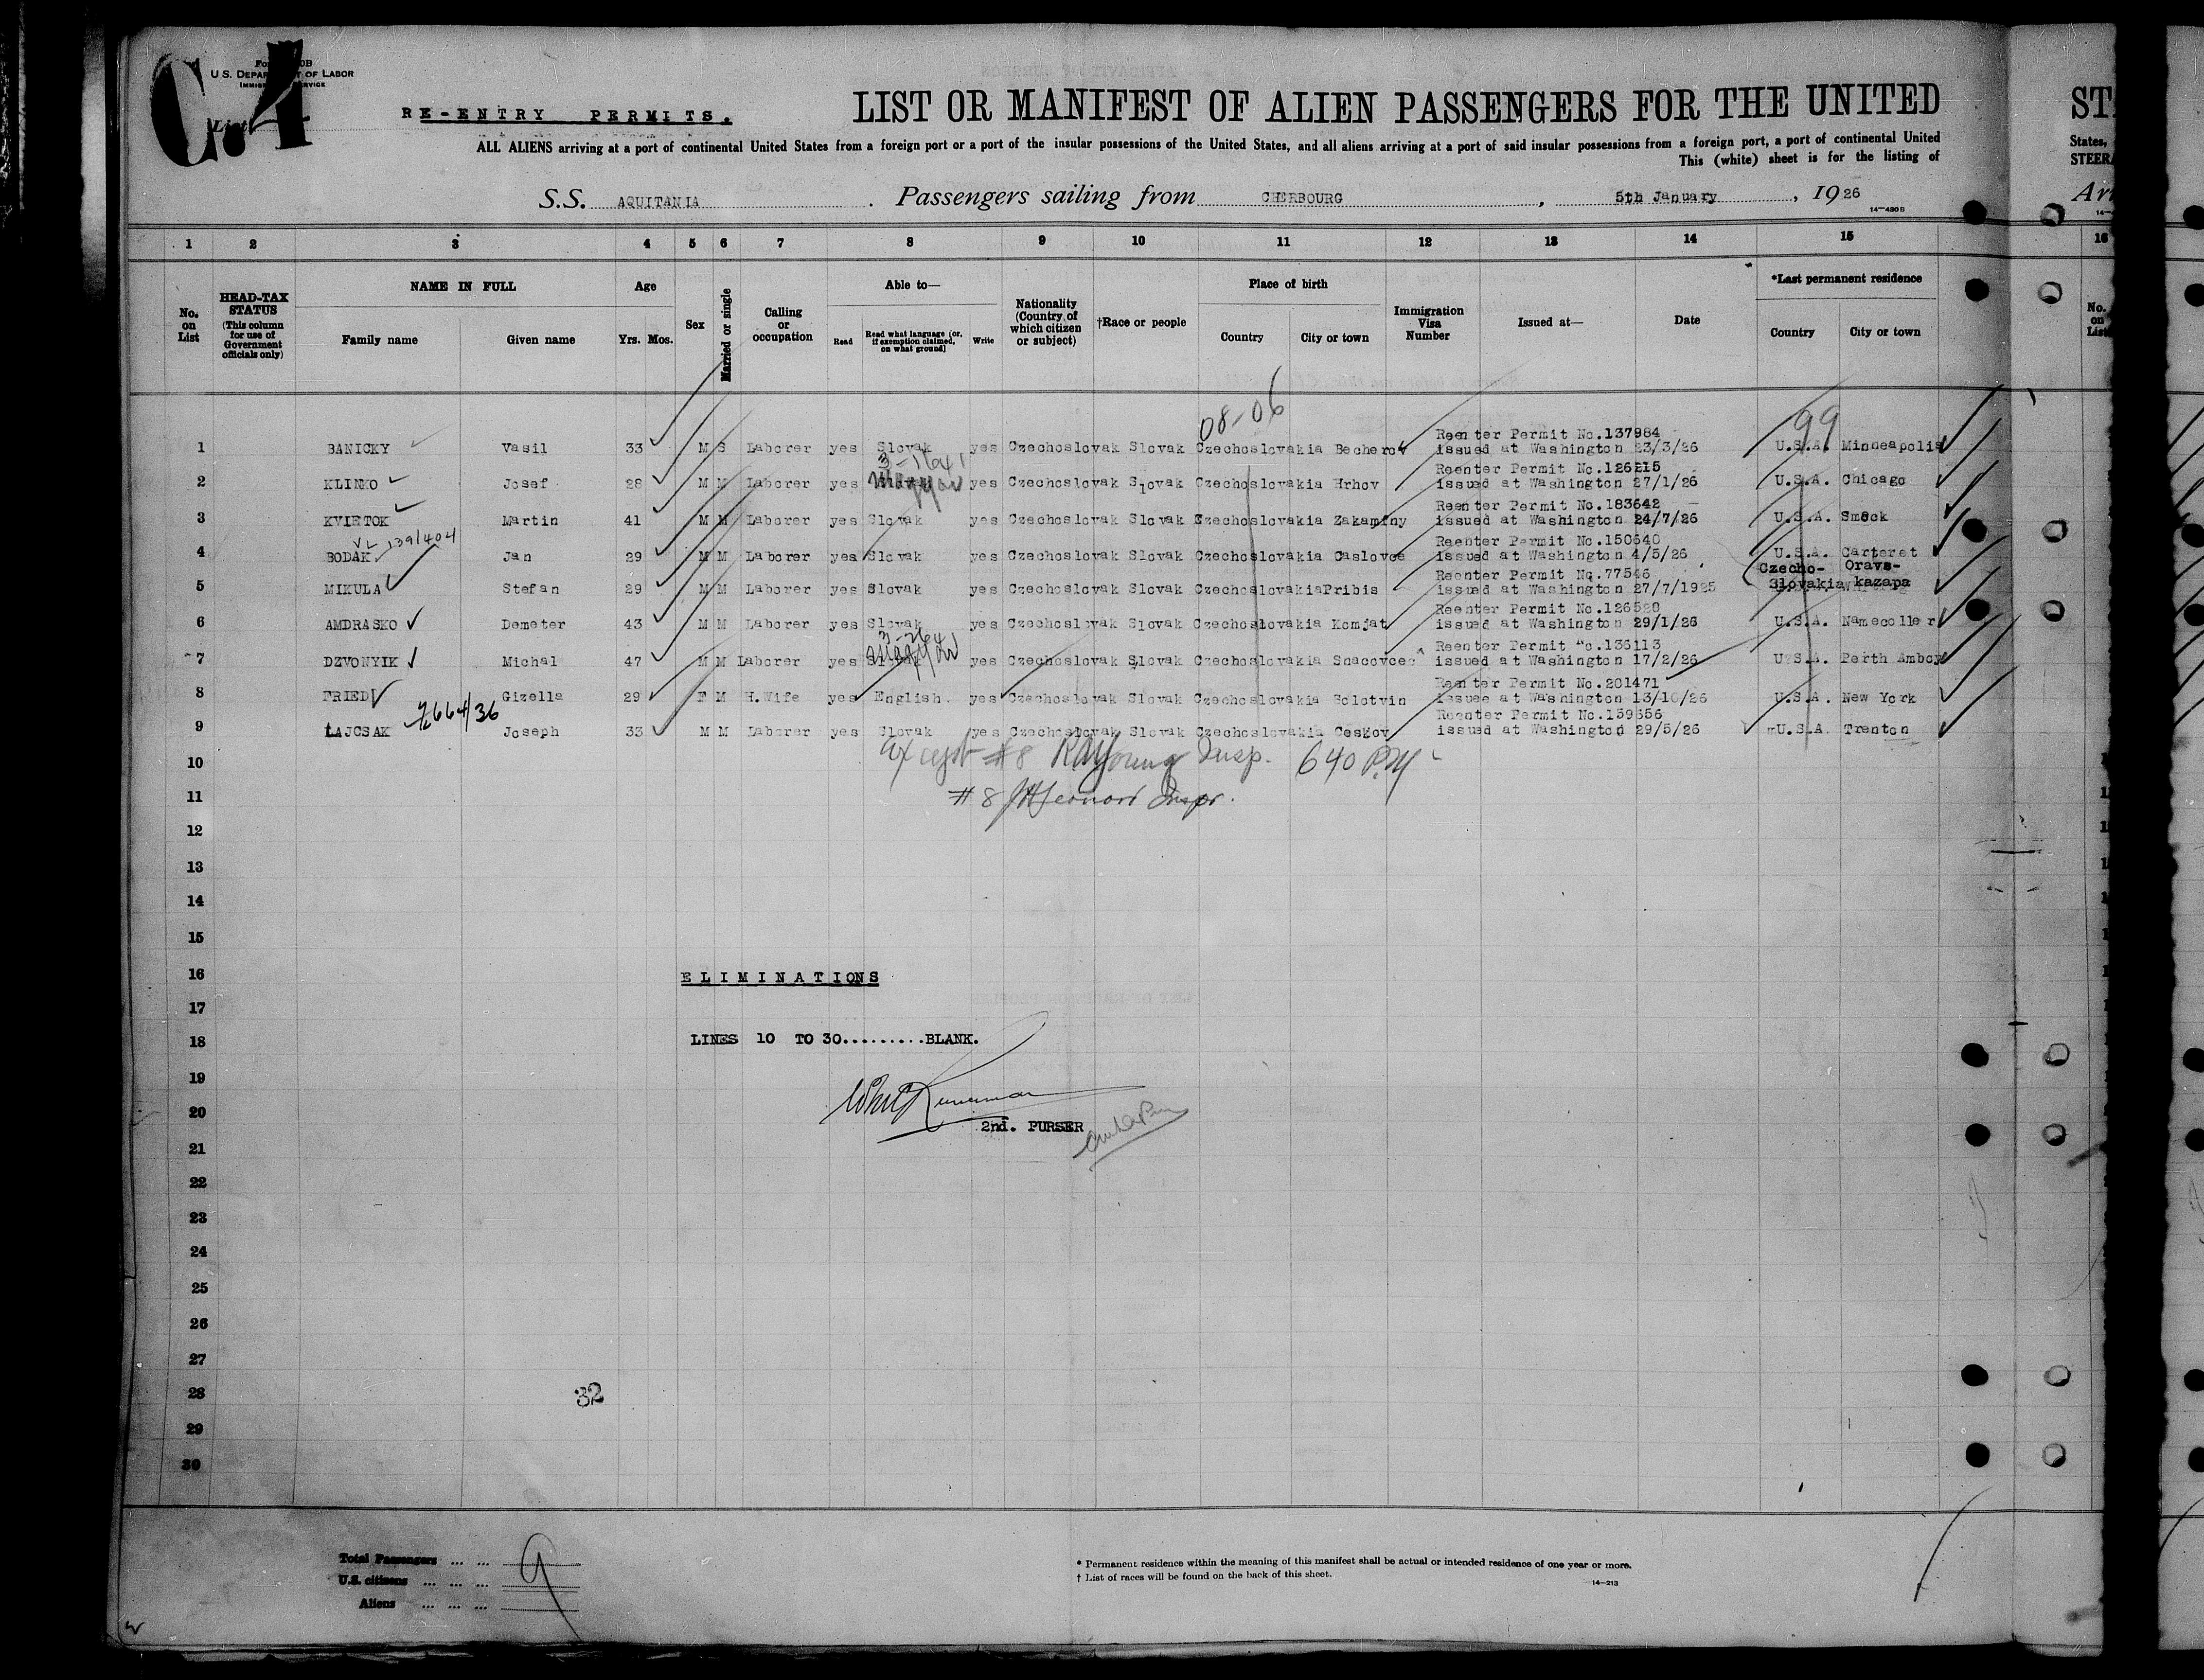 C.4
U.S. DEPARTMENT OF LABOR
IMMIGRATION SERVICE
List
RE-ENTRY PERMITS.
LIST OR MANIFEST OF ALIEN PASSENGERS FOR THE UNITED
ALL ALIENS arriving at a port of continental United States from a foreign port or a port of the insular possessions of the United States, and all aliens arriving at a port of said insular possessions from a foreign port, a port of continental United
This (white) sheet is for the listing of
S.S. AQUITANIA . Passengers sailing from CHERBOURG , 5th January , 1926
14—430 B
1 2 3 4 5 6 7 8 9 10 11 12 13 14 15 16
No. on List
HEAD-TAX STATUS (This column for use of Government officials only)
NAME IN FULL
Family name Given name
Age
Yrs. Mos.
Sex
Married or single
Calling or occupation
Able to—
Read Read what language (or, if exemption claimed, on what ground) Write
Nationality (Country of which citizen or subject)
†Race or people
Place of birth
Country City or town
Immigration Visa Number
Issued at—
Date
*Last permanent residence
Country City or town
No. on List
08-06
99
Reenter Permit No.137984
1 BANICKY Vasil 33 M S Laborer yes Slovak yes Czechoslovak Slovak Czechoslovakia Becherov issued at Washington 23/3/26 U.S.A. Minneapolis
Reenter Permit No.126215
2 KLINKO Josef 28 M M Laborer yes Magyar yes Czechoslovak Slovak Czechoslovakia Hrhov issued at Washington 27/1/26 U.S.A. Chicago
Reenter Permit No.183642
3 KVIETOK Martin 41 M M Laborer yes Slovak yes Czechoslovak Slovak Czechoslovakia Zakaminy issued at Washington 24/7/26 U.S.A. Smock
139/404
Reenter Permit No.150640
4 BODAK Jan 29 M M Laborer yes Slovak yes Czechoslovak Slovak Czechoslovakia Caslovce issued at Washington 4/5/26 U.S.A. Carteret
Reenter Permit No.77546
5 MIKULA Stefan 29 M M Laborer yes Slovak yes Czechoslovak Slovak Czechoslovakia Pribis issued at Washington 27/7/1925 Czecho-Slovakia Oravs-kazapa
Reenter Permit No.126520
6 AMDRASKO Demeter 43 M M Laborer yes Slovak yes Czechoslovak Slovak Czechoslovakia Komjat issued at Washington 29/1/26 U.S.A. Namecoller
Reenter Permit No.136113
7 DZVONYIK Michal 47 M M Laborer yes Magyar yes Czechoslovak Slovak Czechoslovakia Snacovcec issued at Washington 17/2/26 U.S.A. Perth Amboy
Reenter Permit No.201471
8 FRIED Gizella 29 F M H.Wife yes English. yes Czechoslovak Slovak Czechoslovakia Solotvin issued at Washington 13/10/26 U.S.A. New York
Reenter Permit No.139656
9 LAJCSAK Joseph 33 M M Laborer yes Slovak yes Czechoslovak Slovak Czechoslovakia Ceskov issued at Washington 29/5/26 U.S.A. Trenton
10 except #8 RA Young Insp. 640 P.M
11 #8 Inspr.
12
13
14
15
16 ELIMINATIONS
17
18 LINES 10 TO 30.........BLANK.
19
20 2nd. PURSER
21
22
23
24
25
26
27
28 32
29
30
Total Passengers ... ... 9
U.S. citizens ... ... ...
Aliens ... ... ...
* Permanent residence within the meaning of this manifest shall be actual or intended residence of one year or more.
† List of races will be found on the back of this sheet.
14—213